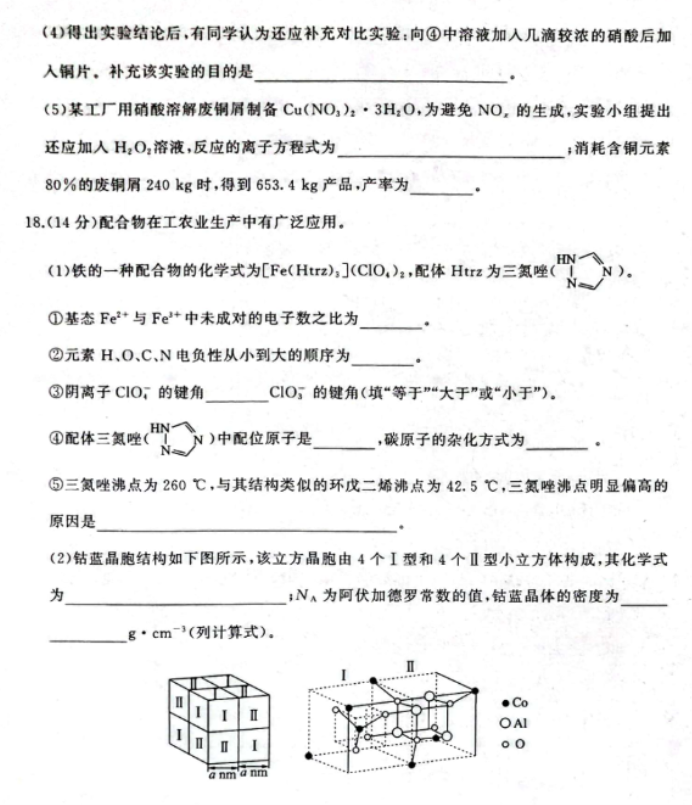 (4)得出实验结论后,有同学认为还应补充对比实验:向④中溶液加入几滴较浓的硝酸后加
入铜片。补充该实验的目的是________。
(5)某工厂用硝酸溶解废铜屑制备 Cu(NO₃)₂·3H₂O,为避免 NOₓ 的生成,实验小组提出
还应加入 H₂O₂溶液,反应的离子方程式为________;消耗含铜元素
80%的废铜屑 240 kg 时,得到 653.4 kg 产品,产率为________。
18.(14 分)配合物在工农业生产中有广泛应用。
(1)铁的一种配合物的化学式为[Fe(Htrz)₃](ClO₄)₂,配体 Htrz 为三氮唑(HN N N)。
①基态 Fe²⁺与 Fe³⁺中未成对的电子数之比为________。
②元素 H、O、C、N 电负性从小到大的顺序为________。
③阴离子 ClO₄⁻ 的键角________ClO₃⁻ 的键角(填“等于”“大于”或“小于”)。
④配体三氮唑(HN N N)中配位原子是________,碳原子的杂化方式为________。
⑤三氮唑沸点为 260 ℃,与其结构类似的环戊二烯沸点为 42.5 ℃,三氮唑沸点明显偏高的
原因是________。
(2)钴蓝晶胞结构如下图所示,该立方晶胞由 4 个Ⅰ型和 4 个Ⅱ型小立方体构成,其化学式
为________;N_A 为阿伏加德罗常数的值,钴蓝晶体的密度为________
________g·cm⁻³(列计算式)。
Ⅰ Ⅱ
Ⅱ Ⅰ Ⅰ Ⅱ
Ⅰ Ⅱ Ⅱ Ⅰ
a nm a nm
●Co
○Al
○O